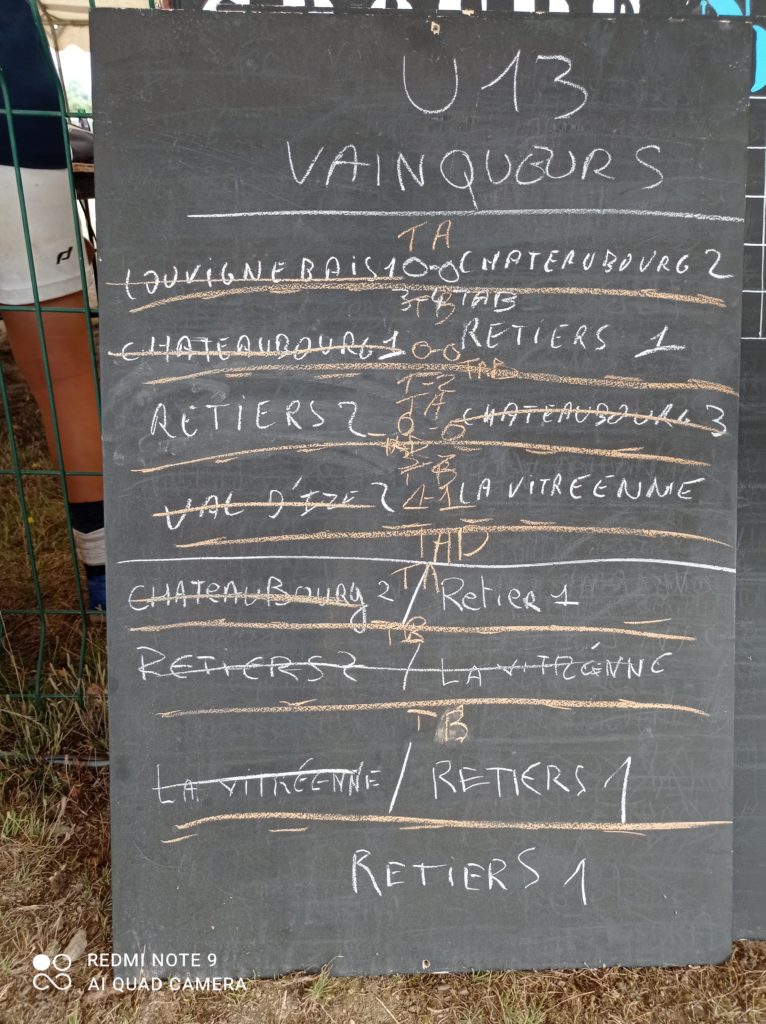 U13
VAINQUEURS
TA
LOUVIGNE BAIS 1 0-0 CHATEAUBOURG 2
3-4 TAB
TB
CHATEAUBOURG 1 0-0 RETIERS 1
1-2 TAB
TA
RETIERS 2 0-0 CHATEAUBOURG 3
VAL D'IZE 2 1-1 LA VITREENNE
TAB
TA
CHATEAUBOURG 2 / Retier 1
TB
RETIERS 2 / LA VITRÉENNE
TB
LA VITRÉENNE / RETIERS 1
RETIERS 1
REDMI NOTE 9
AI QUAD CAMERA